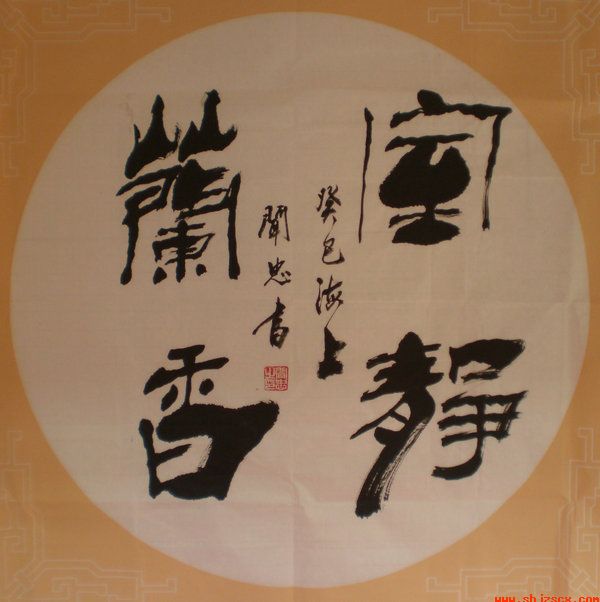 室靜
蘭香
癸巳海上
聞忠书
www.shjzscx.com